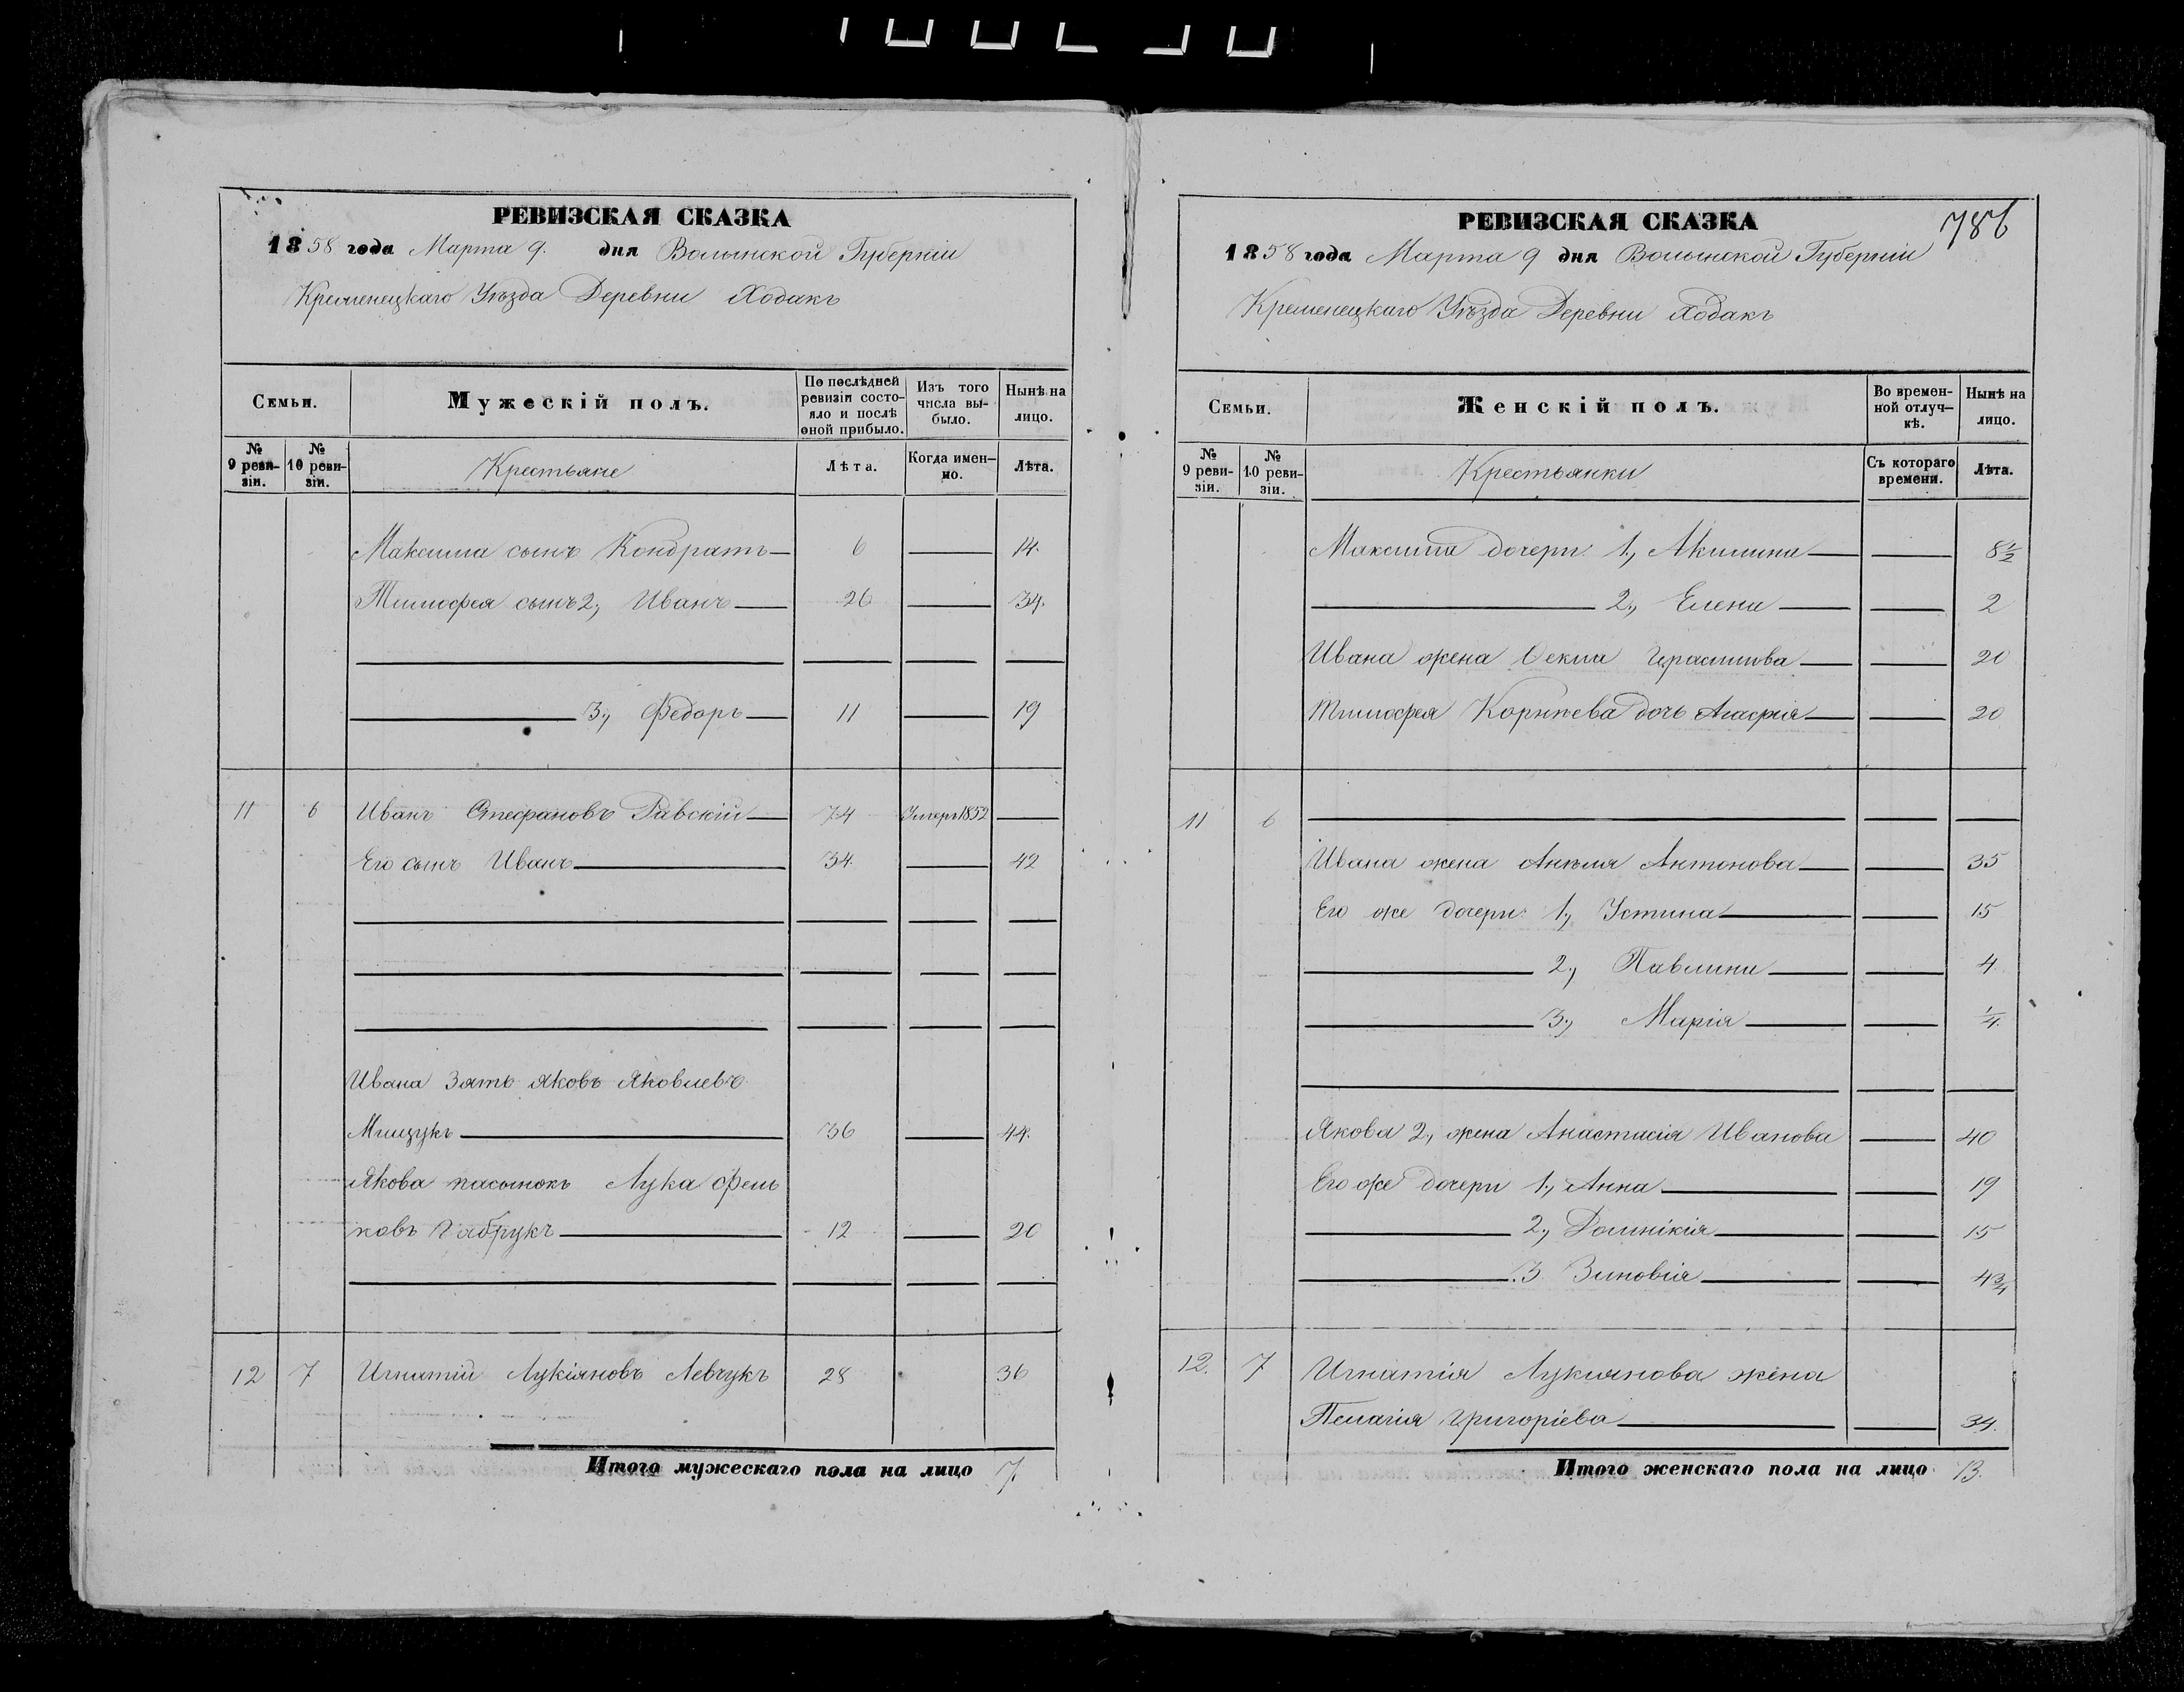 РЕВИЗСКАЯ СКАЗКА
1858 года Марта 9. дня Волынской Губерніи
Кременецкаго Уѣзда Деревни Ходакъ
Семьи.
Мужескій полъ.
По послѣдней ревизіи состояло и послѣ оной прибыло.
Изъ того числа выбыло.
Нынѣ на лицо.
№ 9 ревизіи.
№ 10 ревизіи.
Крестьяне
Лѣта.
Когда именно.
Лѣта.
Максима сынъ Кондратъ 6 14.
Тимофея сынъ 2, Иванъ 26 34.
3, Федоръ 11 19
11 6 Иванъ Стефановъ Равскій 74 Умеръ 1852
Его сынъ Иванъ 34. 42
Ивана зять Яковъ Яковлевъ
Мищукъ 36 44.
Якова пасынокъ Лука
12 20
12 7 Игнатій Лукіяновъ Левчукъ 28 36
Итого мужескаго пола на лицо 7.
786
РЕВИЗСКАЯ СКАЗКА
1858 года Марта 9 дня Волынской Губерніи
Кременецкаго Уѣзда Деревни Ходакъ
Семьи.
Женскій полъ.
Во временной отлучкѣ.
Нынѣ на лицо.
№ 9 ревизіи.
№ 10 ревизіи.
Крестьянки
Съ котораго времени.
Лѣта.
Максима дочери: 1, Акилина 8½
2, Елена 2
Ивана жена Герасимова 20
Тимофея Корнѣева дочь Агафія 20
11 6
Ивана жена Анѣля Антонова 35
Его же дочери: 1, Устина 15
2, Павлина 4
3, Марія ¼.
Якова 2, жена Анастасія Иванова 40
Его же дочери 1, Анна 19
2, Домникія 15
3 Зиновія 4¾
12. 7 Игнатія Лукіянова жена
Пелагія Григоріева 34.
Итого женскаго пола на лицо 13.